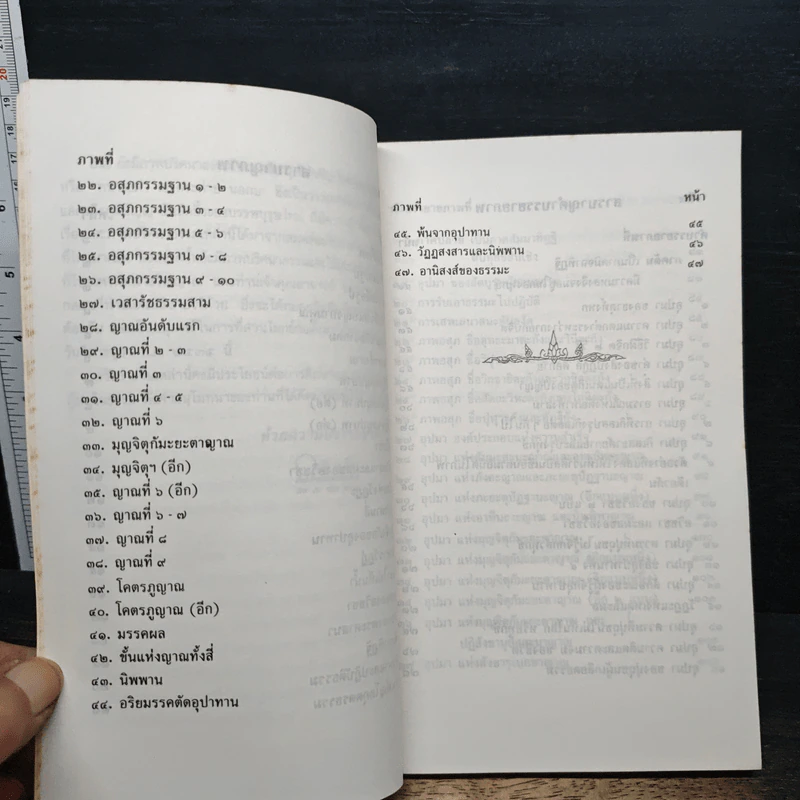 ภาพที่
๒๒. อสุภกรรมฐาน ๑ - ๒
๒๓. อสุภกรรมฐาน ๓ - ๔
๒๔. อสุภกรรมฐาน ๕ - ๖
๒๕. อสุภกรรมฐาน ๗ - ๘
๒๖. อสุภกรรมฐาน ๙ - ๑๐
๒๗. เวสารัชธรรมสาม
๒๘. ญาณอันดับแรก
๒๙. ญาณที่ ๒ - ๓
๓๐. ญาณที่ ๓
๓๑. ญาณที่ ๔ - ๕
๓๒. ญาณที่ ๖
๓๓. มุญจิตุกัมะยะตาญาณ
๓๔. มุญจิตุฯ (อีก)
๓๕. ญาณที่ ๖ (อีก)
๓๖. ญาณที่ ๖ - ๗
๓๗. ญาณที่ ๘
๓๘. ญาณที่ ๙
๓๙. โคตรภูญาณ
๔๐. โคตรภูญาณ (อีก)
๔๑. มรรคผล
๔๒. ขั้นแห่งญาณทั้งสี่
๔๓. นิพพาน
๔๔. อริยมรรคตัดอุปาทาน
ภาพที่ หน้า
๔๕. พ้นจากอุปาทาน ๔๕
๔๖. วัฏฏสงสารและนิพพาน ๔๖
๔๗. อานิสงส์ของธรรมะ ๔๗